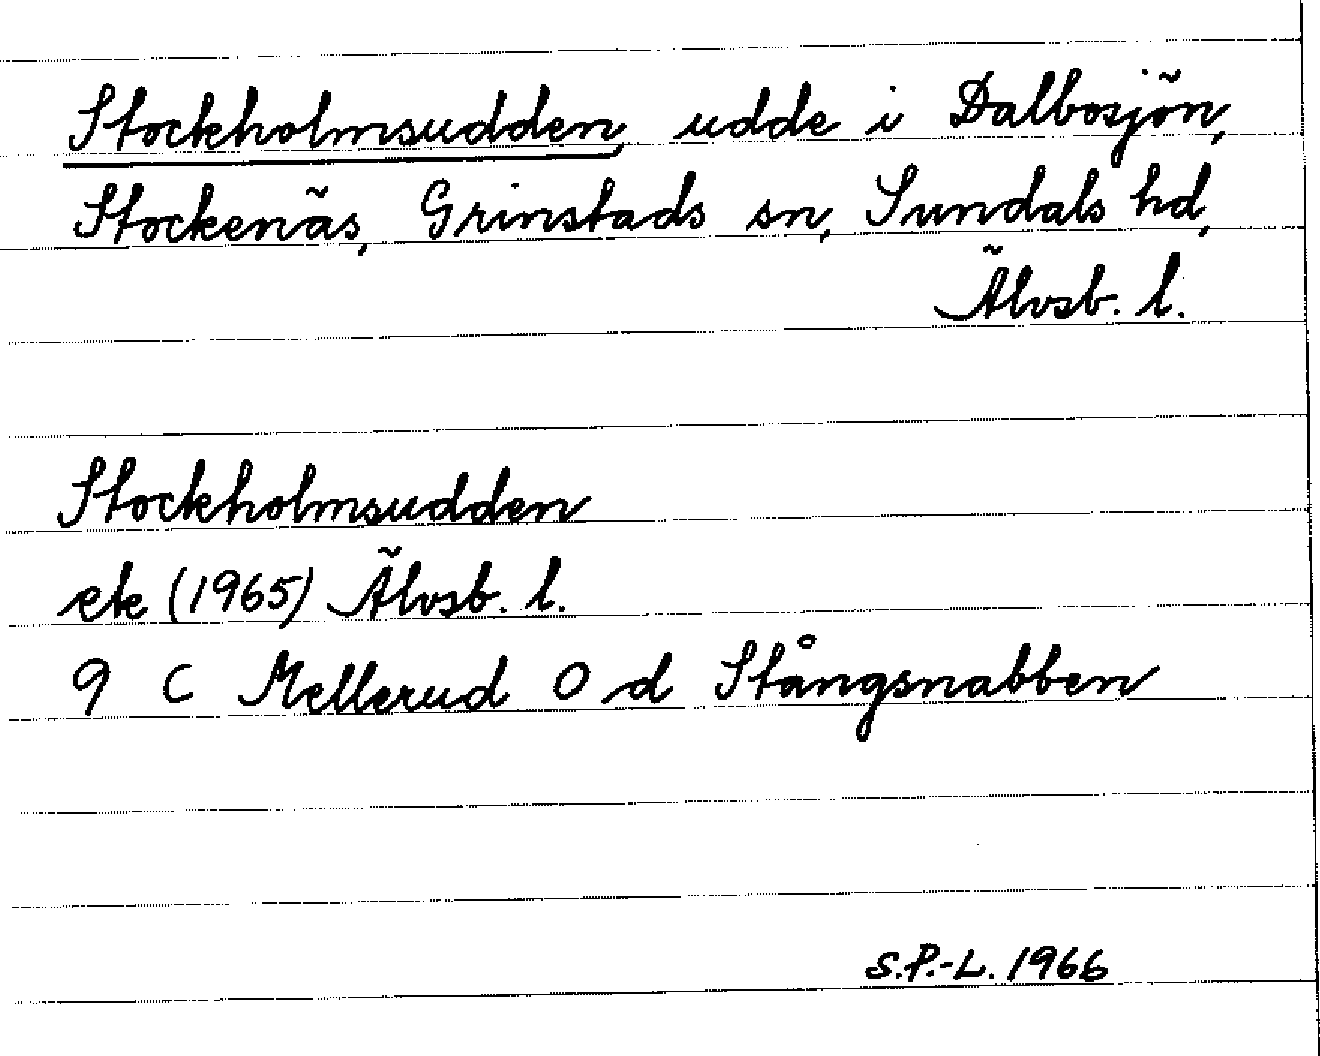 Stockholmsudden, udde i Dalbosjön,
Stockenäs, Grinstads sn, Sundals hd,
Älvsb. l.
Stockholmsudden
ek (1965) Älvsb. l.
9 C Mellerud O d Stångsnabben
S.P.-L. 1966